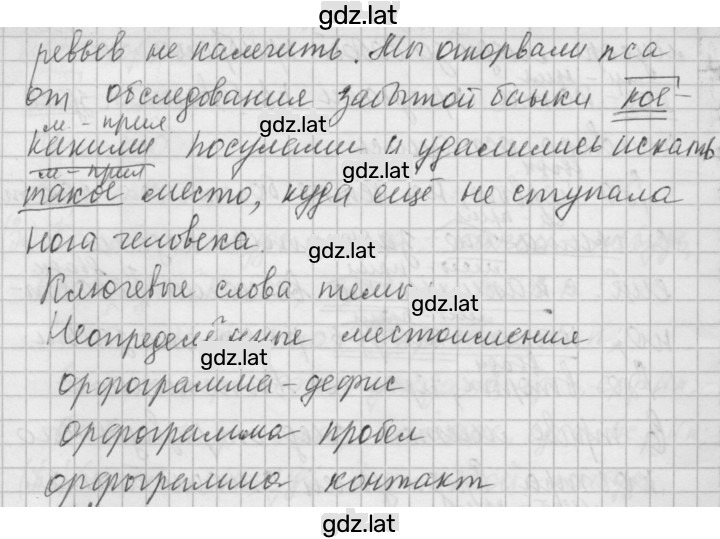 gdz.lat
ревьев не калечить. Мы оторвали пса
от обследования забытой банки кое-
м-прил
gdz.lat
какими посулами и удалились искать
м-прил
gdz.lat
такое место, куда ещё не ступала
нога человека.
gdz.lat
Ключевые слова темы
gdz.lat
Неопределённые местоимения
gdz.lat
орфограмма-дефис
орфограмма пробел
орфограмма контакт
gdz.lat